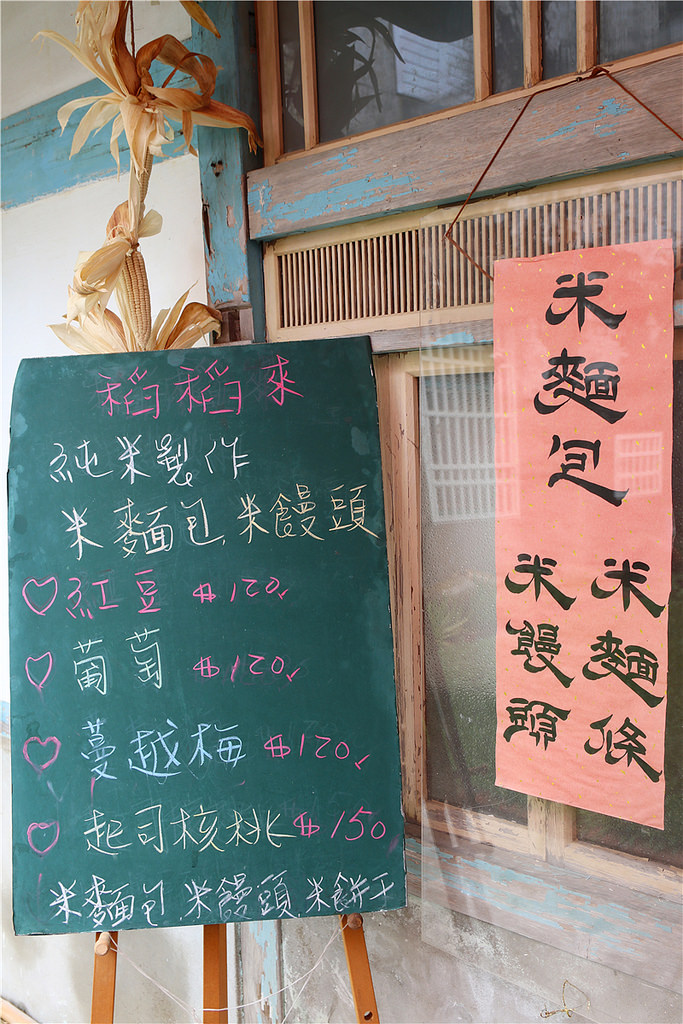 稻稻來
純米製作
米麵包.米饅頭
♡紅豆 $120
♡葡萄 $120
♡蔓越梅 $120
♡起司核桃 $150
米麵包.米饅頭.米餅干
米麵包
米麵條
米饅頭